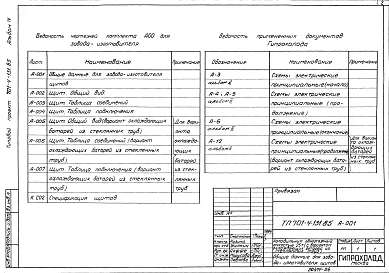 Альбом IV
Типовой проект 701-4-131.85
Ведомость чертежей комплекта АОО для
завода-изготовителя
Лист
Наименование
Примечание
А-001
Общие данные для завода-изготовителя
щитов
А-002
Щит. Общий вид.
А-003
Щит. Таблица соединений
А-004
Щит. Таблица подключения
А-005
Щит. Общий вид (вариант охлаждающих
батарей из стеклянных труб)
Для вари-
анта
А-006
Щит. Таблица соединений (вариант
охлаждающих батарей из стеклянных
труб)
охлаждаю-
щих
батарей
А-007
Щит. Таблица подключения (вариант
охлаждающих батарей из стеклянных
труб)
из стек-
лянных
труб
А-С02
Спецификация щитов
Ведомость примененных документов
Гипрохолода
Обозначение
Наименование
Примечание
А-3
альбом II
Схемы электрические
принципиальные (начало)
А-4; А-5
альбом II
Схемы электрические
принципиальные (про-
должения)
А-6
альбом II
Схемы электрические
принципиальные (окончание)
А-12
альбом II
Схемы электрические
принципиальные (продолжение)
(вариант охлаждающих бата-
рей из стеклянных труб)
Для вариан-
та охлаж-
дающих
батарей
из стеклян-
ных труб
Привязан
Инв. №
ТП 701-4-131.85 А-001
Общие данные для заво-
да-изготовителя щитов
ГИПРОХОЛОД
Москва